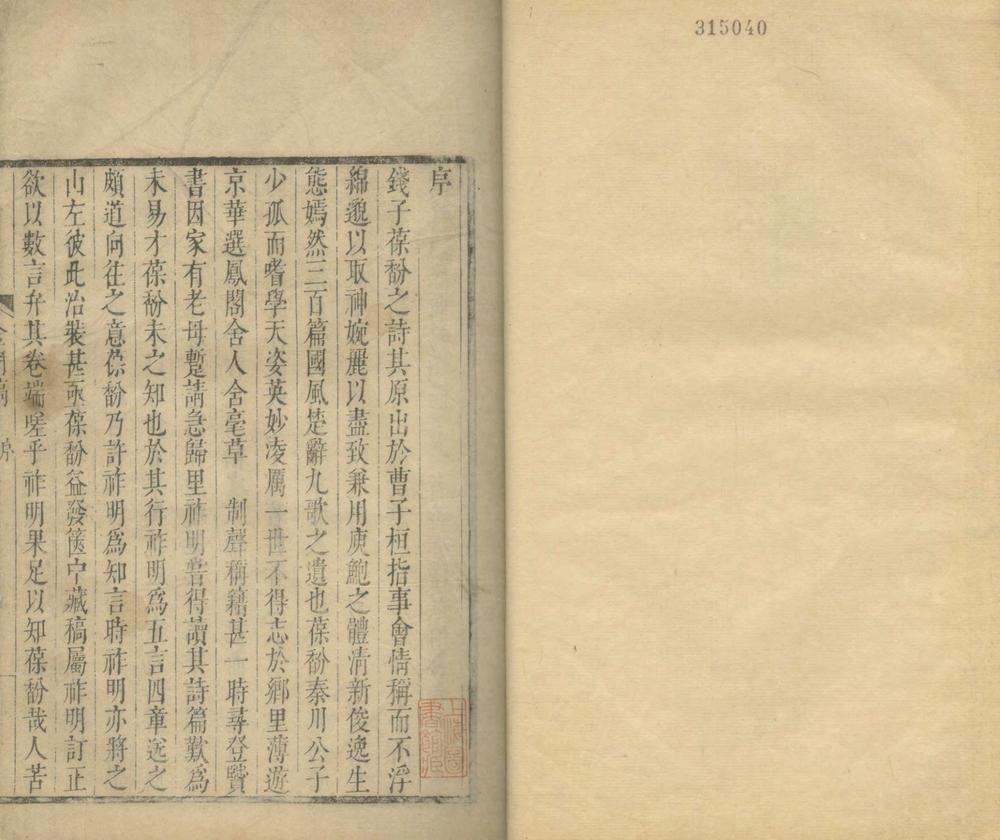 315040
序
錢子葆馚之詩其原出於曹子桓指事會情稱而不浮
綿邈以取神婉麗以盡致兼用庾鮑之體清新俊逸生
態嫣然三百篇國風楚辭九歌之遺也葆馚秦川公子
少孤而嗜學天姿英妙凌厲一世不得志於鄉里薄遊
京華選鳳閣舍人含毫草 制聲稱籍甚一時尋登賢
書因家有老母蹔請急歸里祚明嘗得讀其詩篇歎為
未易才葆馚未之知也於其行祚明為五言四章送之
頗道向往之意葆馚乃許祚明爲知言時祚明亦將之
山左彼此治裝甚亟葆馚益發篋中藏稿屬祚明訂正
欲以數言弁其卷端嗟乎祚明果足以知葆馚哉人苦
金門稿 序
上海圖書館藏